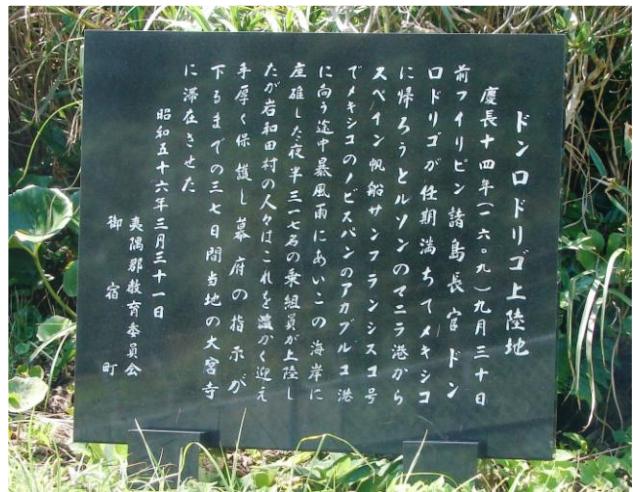 ドンロドリゴ上陸地
慶長十四年(一六〇九)九月三十日
前フイリピン諸島長官ドン
ロドリゴが任期満ちてメキシコ
に帰ろうとルソンのマニラ港から
スペイン帆船サンフランシスコ号
でメキシコのノビスパンのアカプルコ港
に向う途中暴風雨にあいこの海岸に
座礁した夜半三一七名の乗組員が上陸し
たが岩和田村の人々はこれを温かく迎え
手厚く保護し幕府の指示が
下るまでの三七日間当地の大宮寺
に滞在させた
昭和五十六年三月三十一日
夷隅郡教育委員会
御宿町